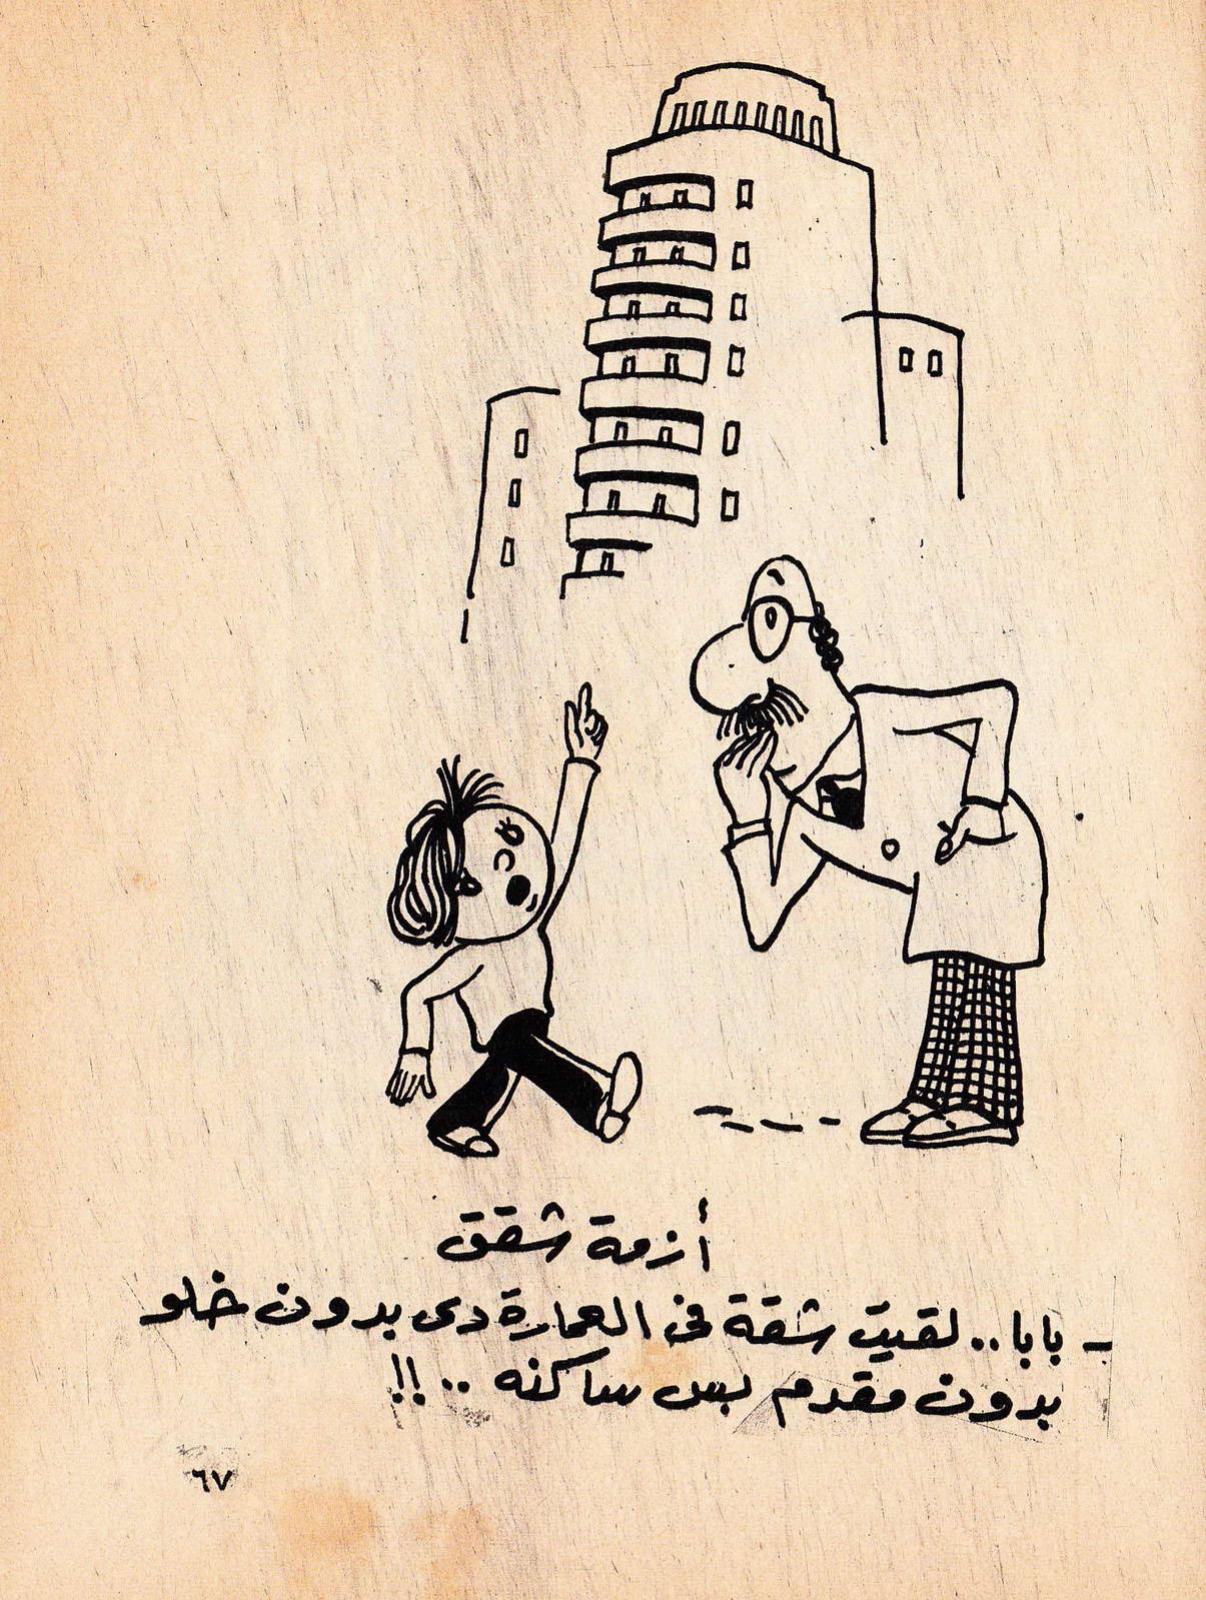 أزمة شقق
- بابا.. لقيت شقة فى العمارة دى بدون خلو
بدون مقدم بس ساكنه ..!!
٦٧